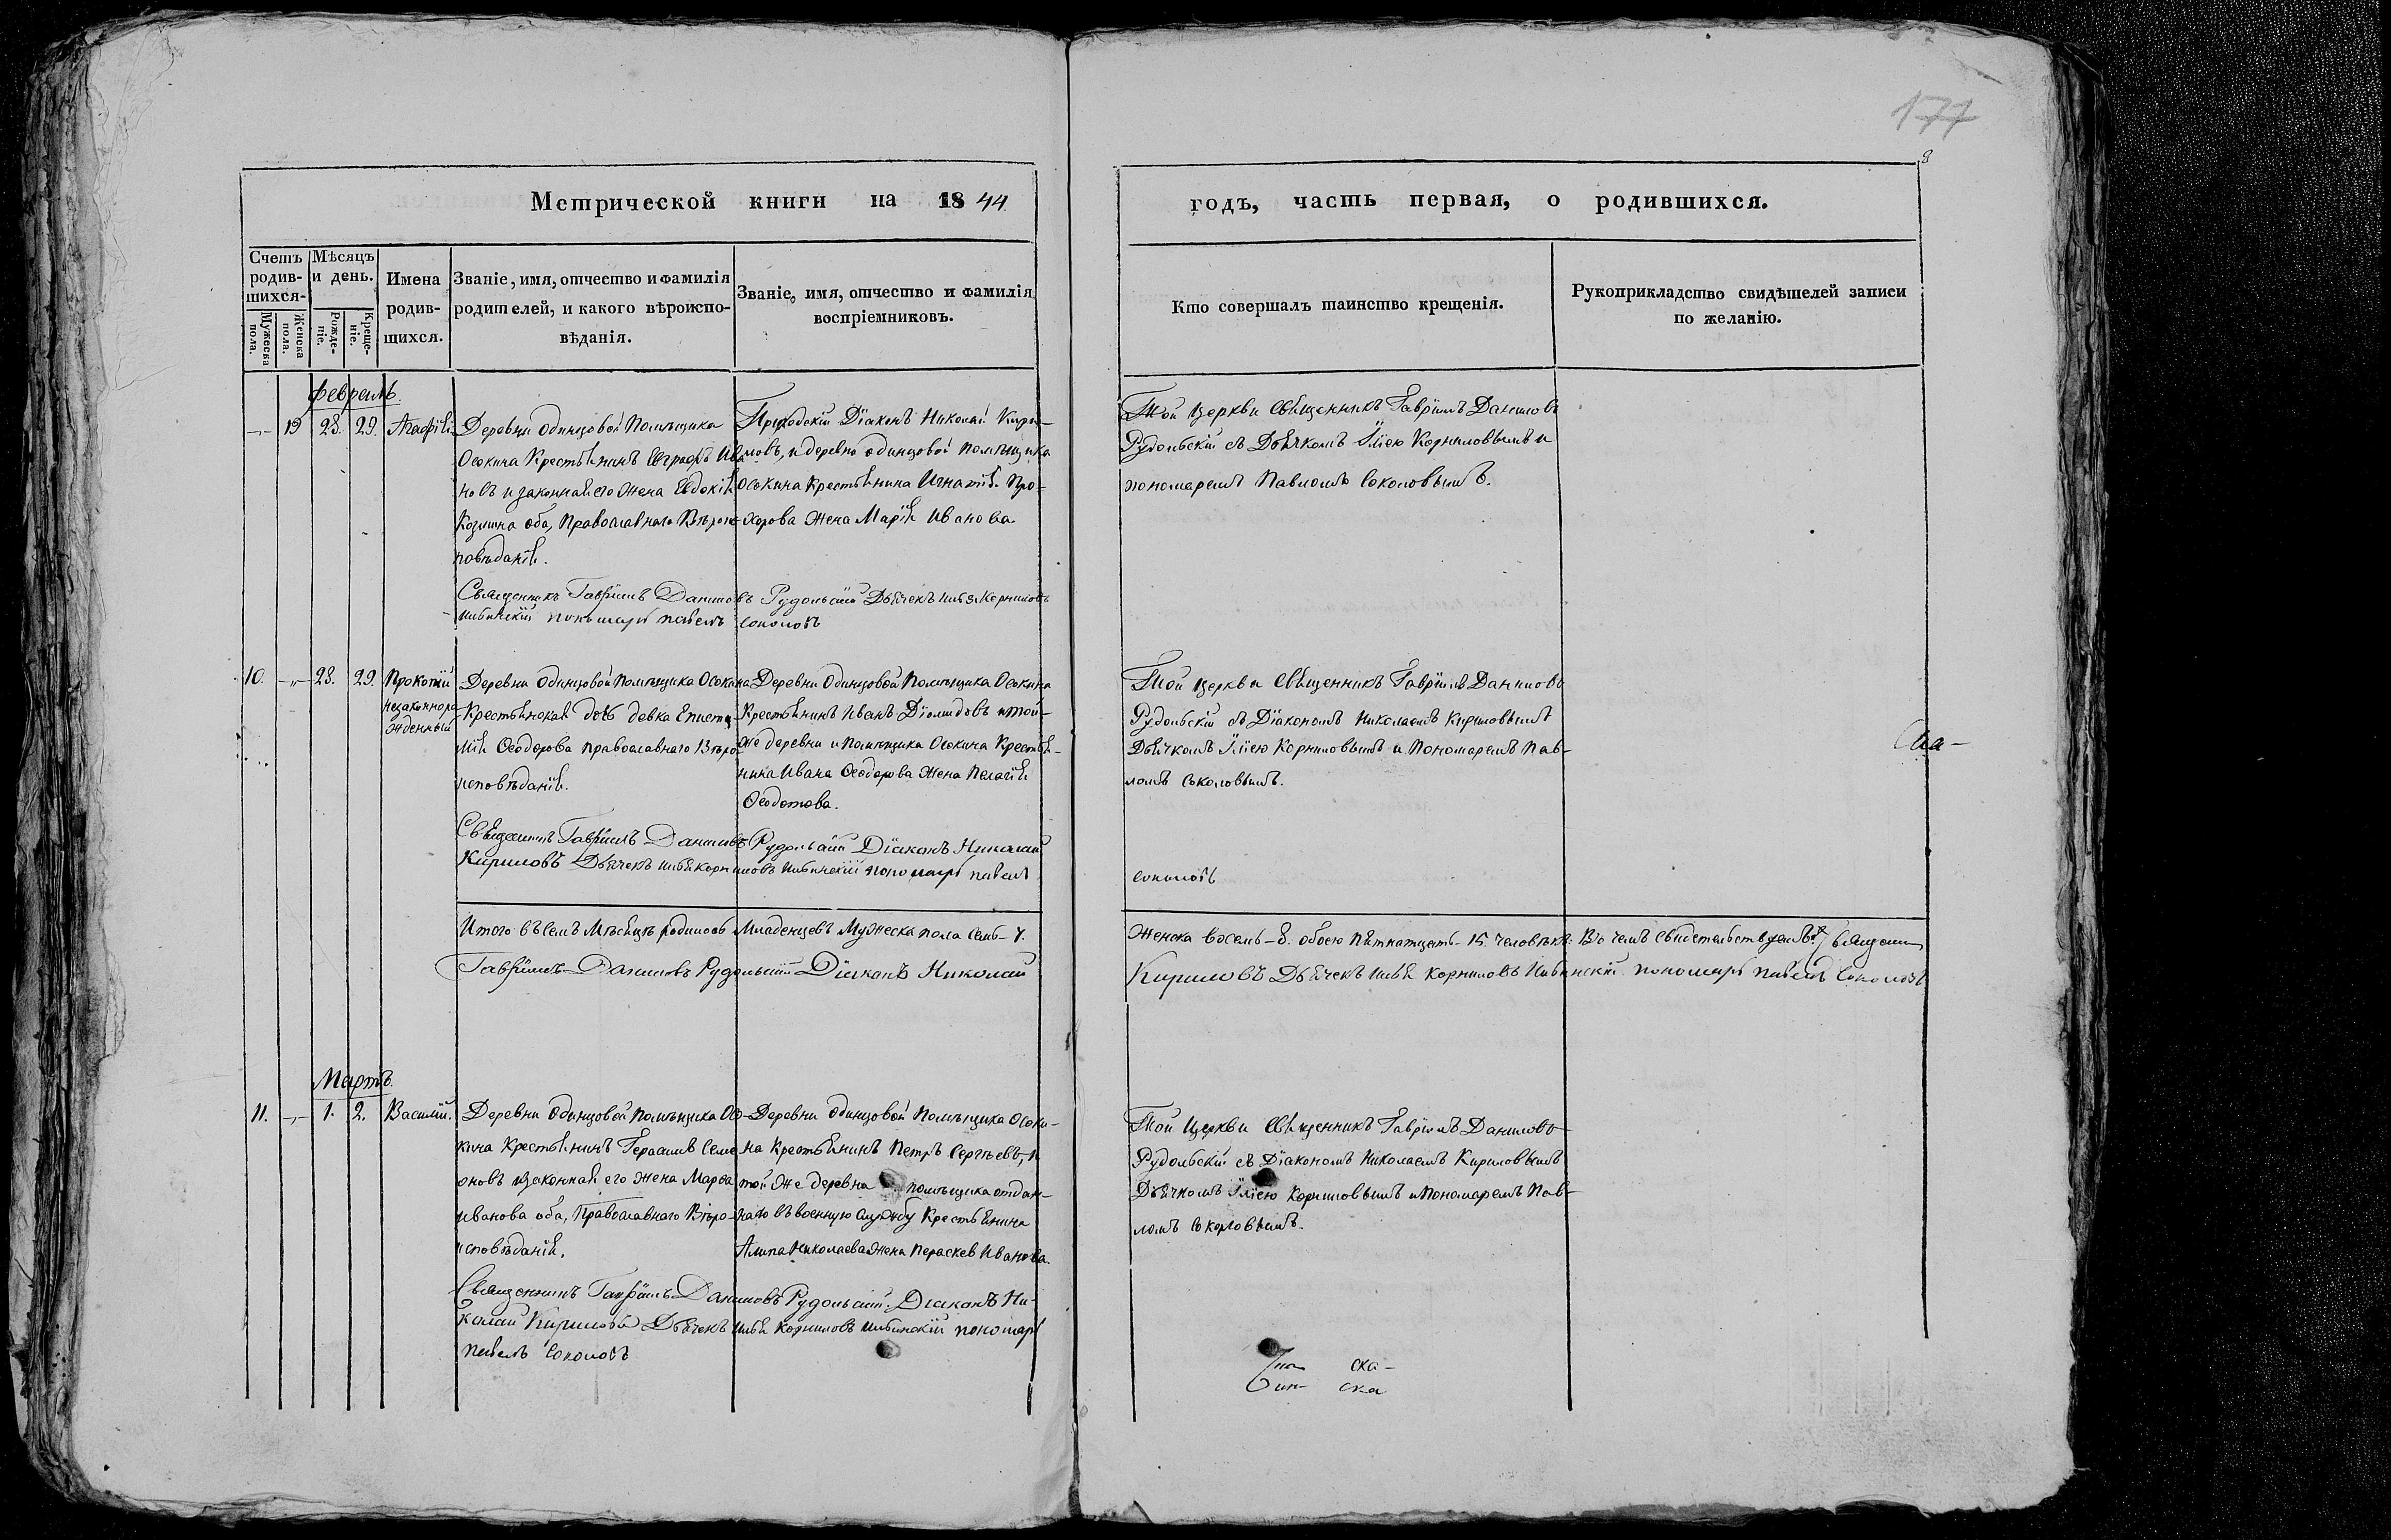 177
8
Метрической книги на 1844
Счетъ родив-шихся.
Мужеска пола.
Женска пола.
Мѣсяцъ и день.
Рожде-ніе.
Креще-ніе.
Имена родив-шихся.
Званіе, имя, отчество и фамилія
родителей, и какого вѣроиспо-
вѣданія.
Званіе, имя, отчество и фамилія
воспріемниковъ.
Февраль.
—„— 13 28. 29. Агафія
Деревни Одинцовой Помѣщика
Осокина Крестьянинъ Евграфъ Ива
новъ и законная его жена Евдокія
Козмина оба, Православнаго Вѣроис
повѣданія.
Приходскій Діаконъ Николай Кири-
ловъ, и деревни Одинцовой помѣщика
Осокина Крестьянина Игнатія Про-
хорова Жена Марія Иванова.
Священникъ Гавріилъ Даниловъ Рудольскій Дьячекъ Илья Корниловъ
Ильинскій пономарь павелъ Соколовъ
10. —„— 28. 29. Прокопій
незаконноро
жденный
Деревни Одинцовой Помѣщика Осокина
Крестьянская дочь девка Еписти
мія Ѳеодорова православнаго Вѣро
исповѣданія.
Деревни Одинцовой Помѣщика Осокина
Крестьянинъ Иванъ Діомидовъ и той-
же деревни и помѣщика Осокина Крестья-
нина Ивана Ѳеодорова Жена Пелагія
Ѳеодотова.
Священникъ Гавріилъ Даниловъ Рудольскій Діаконъ Николай
Кириловъ Дьячекъ Илья Корниловъ Ильинскій пономарь павелъ
Итого въ семъ Мѣсяцѣ родилось Младенцевъ Мужеска пола семь-7.
Гавріилъ Даниловъ Рудольскій Діаконъ Николай
Мартъ.
11. —„— 1. 2. Василій.
Деревни Одинцовой Помѣщика Осо-
кина Крестьянинъ Герасимъ Семе
оновъ и законная его жена Марѳа
Иванова оба, Православнаго Вѣро-
исповѣданія.
Деревни Одинцовой Помѣщика Осоки-
на Крестьянинъ Петръ Сергѣевъ, и
той же деревни помѣщика отдан-
наго въ военную службу Крестьянина
Николаева Жена Параскев Иванова.
Священникъ Гавріилъ Даниловъ Рудольскій. Діаконъ Ни-
колай Кириловъ Дьячекъ Илья Корниловъ Ильинскій пономарь
павелъ Соколовъ
годъ, часть первая, о родившихся.
Кто совершалъ таинство крещенія.
Рукоприкладство свидѣтелей записи
по желанію.
Той церкви Священникъ Гавріилъ Даниловъ
Рудольскій съ Дьячкомъ Иліею Корниловымъ и
пономаремъ Павломъ Соколовымъ.
Той церкви Священникъ Гавріилъ Даниловъ
Рудольскій съ Діакономъ Николаемъ Кириловымъ
Дьячкомъ Иліею Корниловымъ и Пономаремъ Пав-
ломъ Соколовымъ.
Соколовъ
Женска восемь-8. обоего пятнатцать-15 человѣкъ. Въ чемъ свидетельствуемъ: Священникъ
Кириловъ Дьячекъ Илья Корниловъ Ильинскій пономарь павелъ Соколовъ
Той Церкви Священникъ Гавріилъ Даниловъ
Рудольскій съ Діакономъ Николаемъ Кириловымъ
Дьячкомъ Иліею Корниловымъ и Пономаремъ Пав-
ломъ Соколовымъ.
ска-
ска